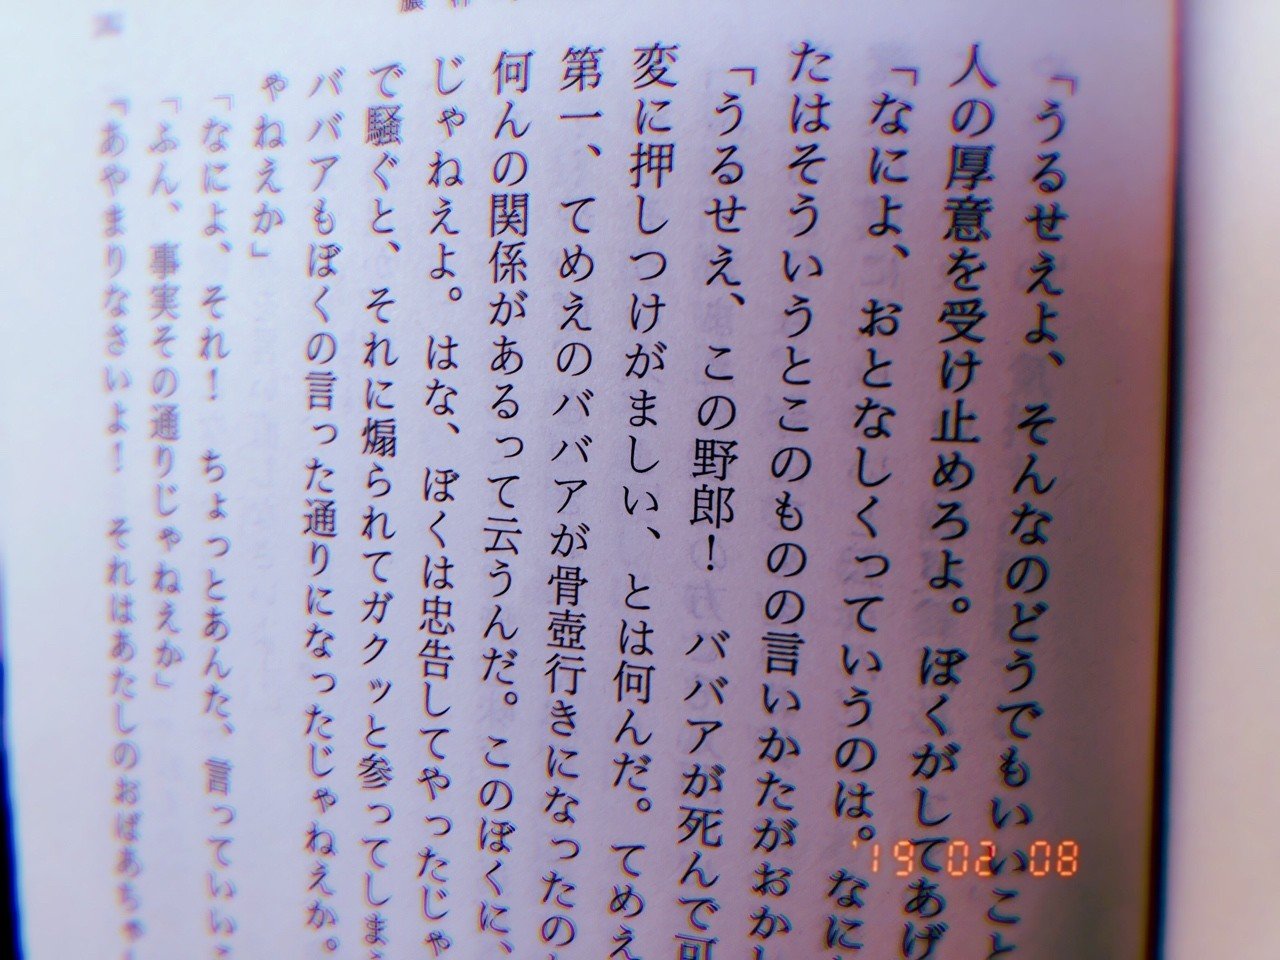 「うるせえよ、そんなのどうでもいいこと
人の厚意を受け止めろよ。ぼくがしてあげ
「なによ、おとなしくっていうのは。なに
たはそういうとこのものの言いかたがおかし
「うるせえ、この野郎！　ババアが死んで可
変に押しつけがましい、とは何んだ。てめえ
第一、てめえのババアが骨壺行きになったの
何んの関係があるって云うんだ。このぼくに、
じゃねえよ。はな、ぼくは忠告してやったじゃ
で騒ぐと、それに煽られてガクッと参ってしま
ババアもぼくの言った通りになったじゃねえか。
ゃねえか」
「なによ、それ！　ちょっとあんた、言っていいこ
「ふん、事実その通りじゃねえか」
「あやまりなさいよ！　それはあたしのおばあちゃ
'19 02 08